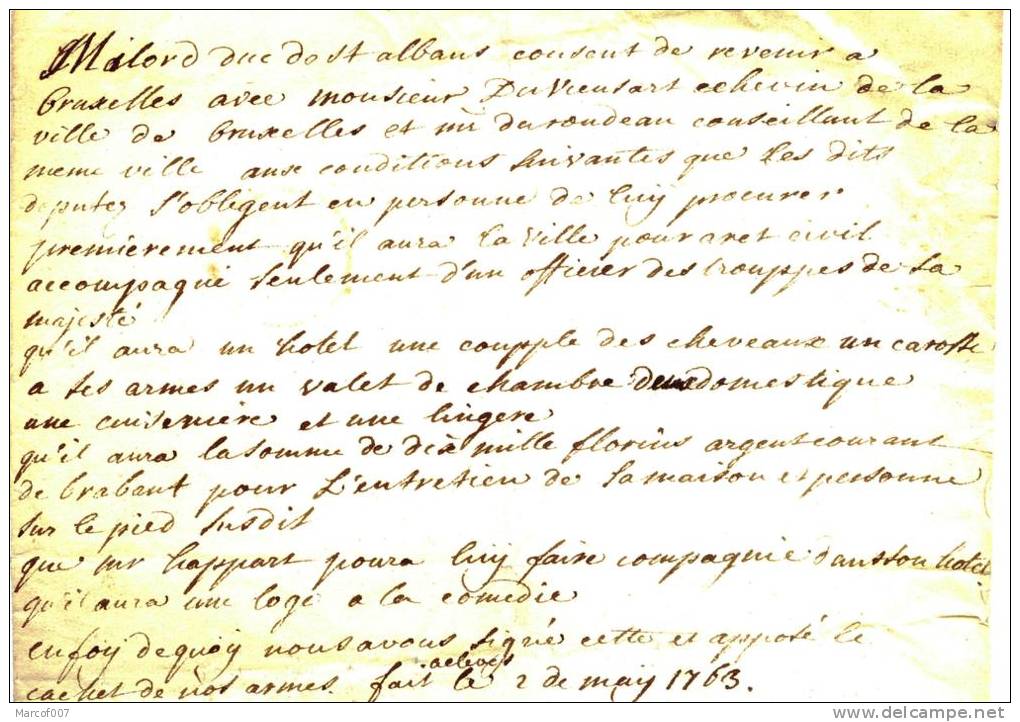 Milord duc de st albans consent de revenir a
bruxelles avec monsieur Duvieusart echevin de la
ville de bruxelles et mr durondeau conseillant de la
meme ville aux conditions suivantes que les dits
deputez s'obligent en personne de luy procurer
premierement qu'il aura la ville pour aret civil
accompagné seulement d'un officier des trouppes de sa
majesté
qu'il aura un hotel une coupple des cheveaux un carosse
a ses armes un valet de chambre deux domestique
une cuiseniere et une lingere
qu'il aura la somme de dix mille florins argent courant
de brabant pour L'entretien de sa maison et personne
sur le pied susdit
que mr happart poura luy faire compagnie dans son hotel
qu'il aura une loge a la comedie
en foy de quoy nous avons signé cette et apposé le
cachet de nos armes. fait le 2 de may 1763.
Marcof007
www.delcampe.net